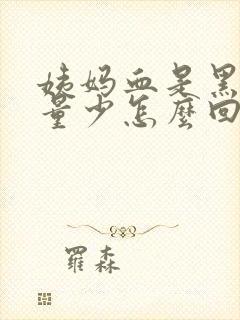 姨妈血是黑
量少怎麼回
羅森